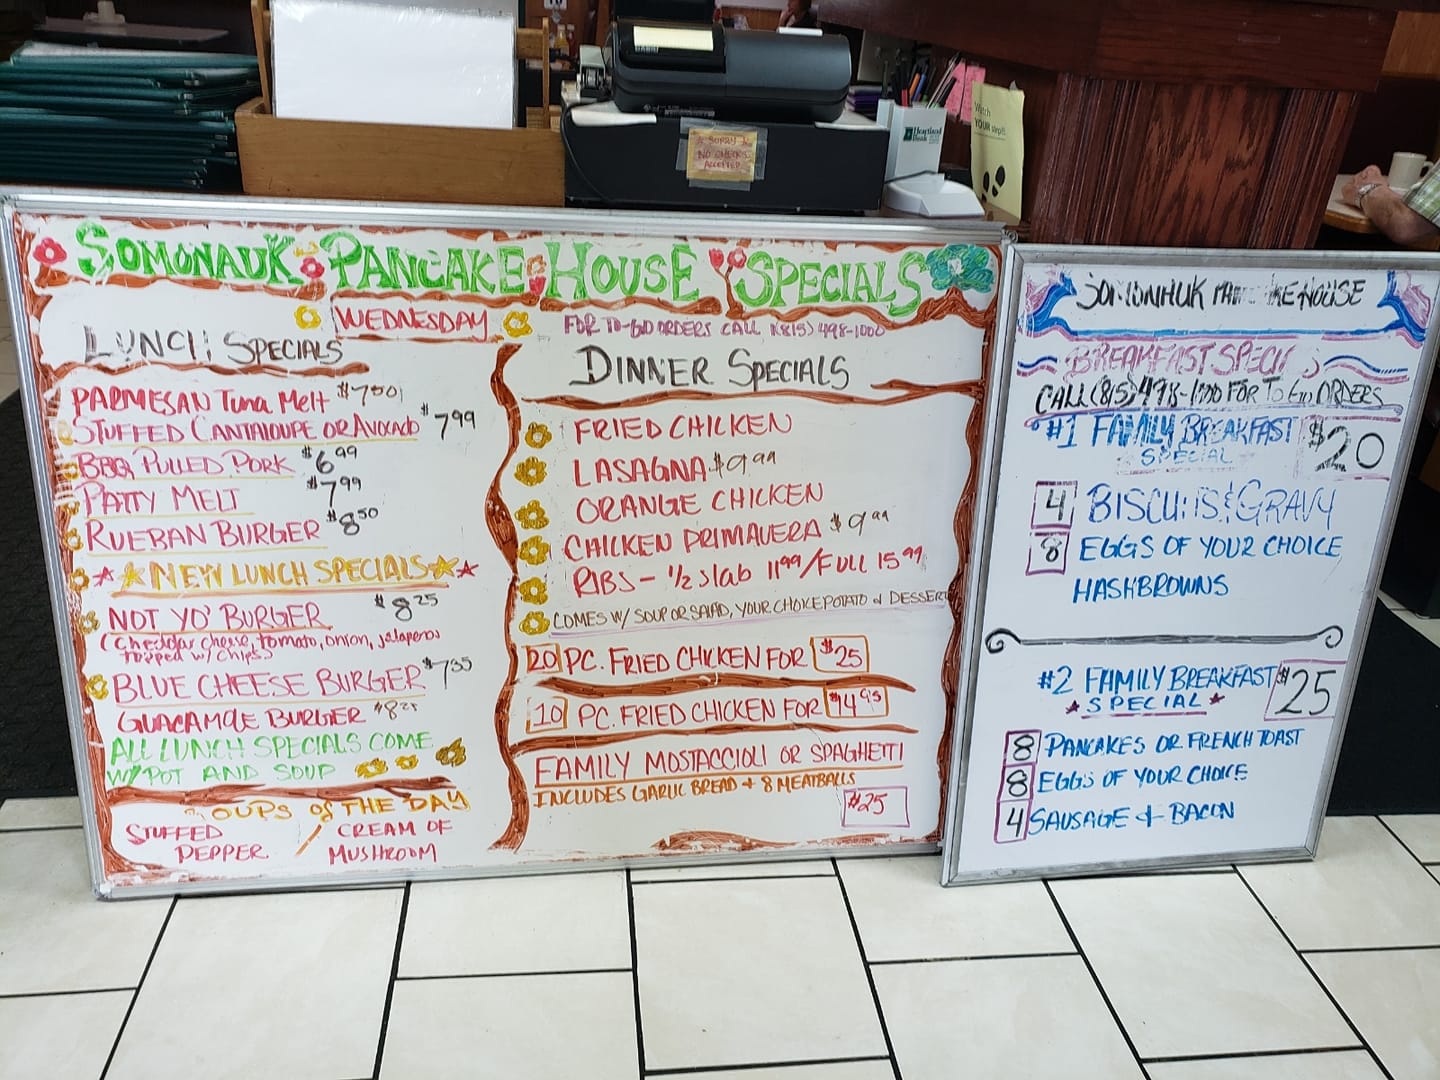 SORRY
NO CHECKS
ACCEPTED
Heartland
Bank
Watch
YOUR step!!
SOMONAUK PANCAKE HOUSE SPECIALS
WEDNESDAY
FOR TO-GO ORDERS CALL 1(815) 498-1000
LUNCH SPECIALS
PARMESAN Tuna Melt $7.50
STUFFED CANTALOUPE OR AVOCADO $7.99
BBQ PULLED PORK $6.99
PATTY MELT $7.99
RUEBAN BURGER $8.50
NEW LUNCH SPECIALS
NOT YO' BURGER $8.25
(Cheddar cheese, tomato, onion, jalapeños
TOPPED W/ CHIPS)
BLUE CHEESE BURGER
GUACAMOLE BURGER
ALL LUNCH SPECIALS COME
W/ POT AND SOUP
SOUPS of THE DAY
STUFFED PEPPER / CREAM OF MUSHROOM
DINNER SPECIALS
FRIED CHICKEN
LASAGNA $9.99
ORANGE CHICKEN
CHICKEN PRIMAVERA $9.99
RIBS - 1/2 slab 11.99/FULL 15.99
COMES W/ SOUP OR SALAD, YOUR CHOICE POTATO & DESSERT
20 PC. FRIED CHICKEN FOR $25
10 PC. FRIED CHICKEN FOR $14.95
FAMILY MOSTACCIOLI OR SPAGHETTI
INCLUDES GARLIC BREAD + 8 MEATBALLS
$25
SOMONAUK PANCAKE HOUSE
BREAKFAST SPECIALS
CALL (815) 498-1000 FOR TO GO ORDERS
#1 FAMILY BREAKFAST $20
SPECIAL
4 BISCUITS & GRAVY
8 EGGS OF YOUR CHOICE
HASHBROWNS
#2 FAMILY BREAKFAST $25
SPECIAL
8 PANCAKES OR FRENCH TOAST
8 EGGS OF YOUR CHOICE
4 SAUSAGE & BACON